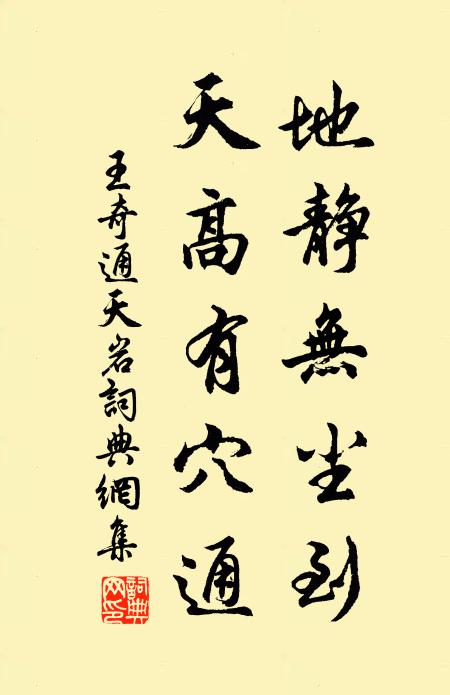 地靜無尘到
天高有穴通
王奇通天岩詞典網集
詞典網印